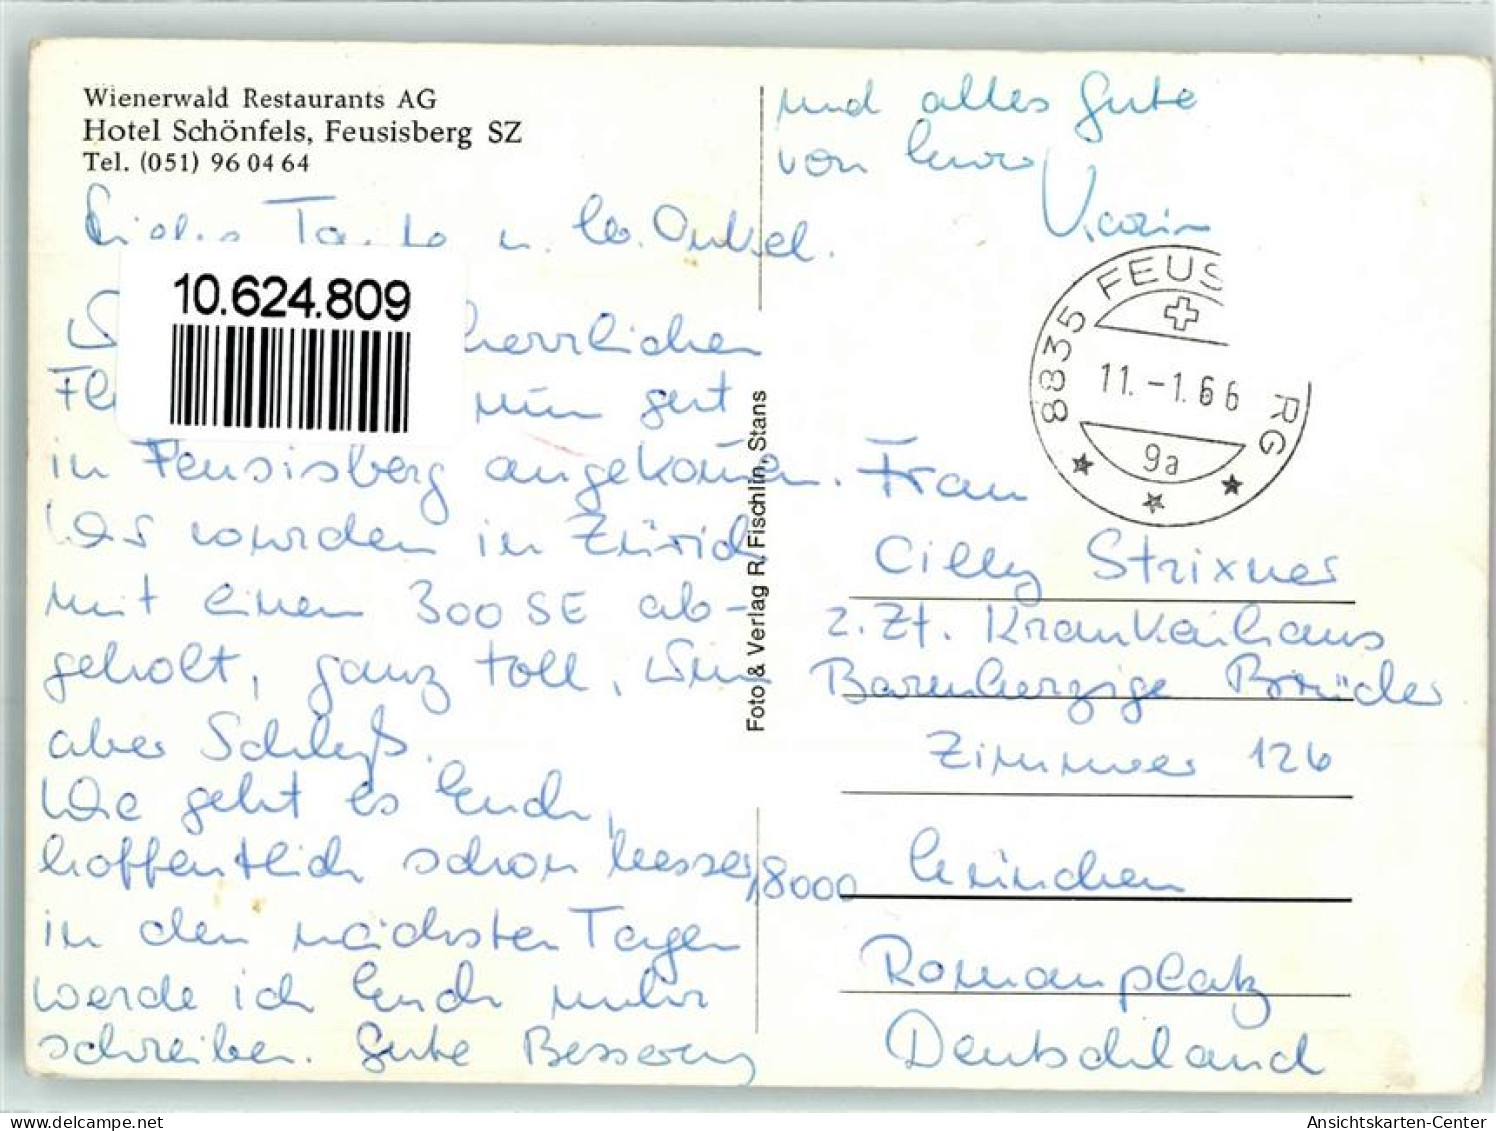 Wienerwald Restaurants AG
Hotel Schönfels, Feusisberg SZ
Tel. (051) 96 04 64
Liebes Tante u. lb. Onkel.
herrlichen
Fl nun gut
in Feusisberg angekommen.
Wir wurden in Zürich
mit einem 300 SE ab-
geholt, ganz toll,
aber Schluß.
Wie geht es Euch,
hoffentlich schon besser,
in den nächsten Tagen
werde ich Euch mehr
schreiben. Gute Besserung
und alles Gute
von Eurer
10.624.809
Foto & Verlag R. Fischlin, Stans
8835 FEUS RG
11.-1.66
9a
Frau
Cilly Strixner
z. Zt. Krankenhaus
Barmherzige Brüder
Zimmer 126
8000 München
Romanplatz
Deutschland
oldthing.de
Ansichtskarten-Center